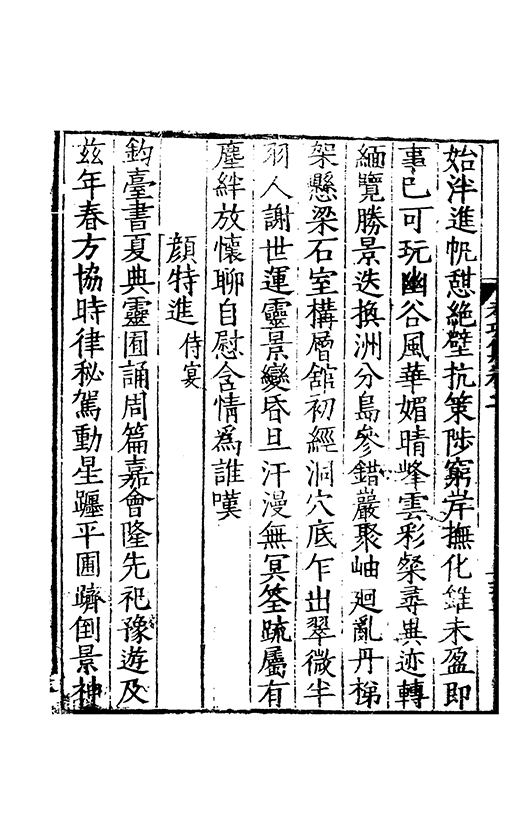 始泮進帆憇絶壁抗策陟窮岸撫化雖未盈即
事已可玩幽谷風華媚晴峰雲彩粲尋異迹轉
緬覽勝景迭換洲分島參錯巖聚岫廻亂丹梯
架懸梁石室構層舘初經洞穴底乍出翠微半
羽人謝世運靈景變昏旦汗漫無冥筌疏屬有
塵絆放懷聊自慰含情爲誰嘆
顔特進 侍宴
鈞臺書夏典靈囿誦周篇嘉會隆先祀豫遊及
玆年春方協時律秘駕動星躔平圃躋倒景神